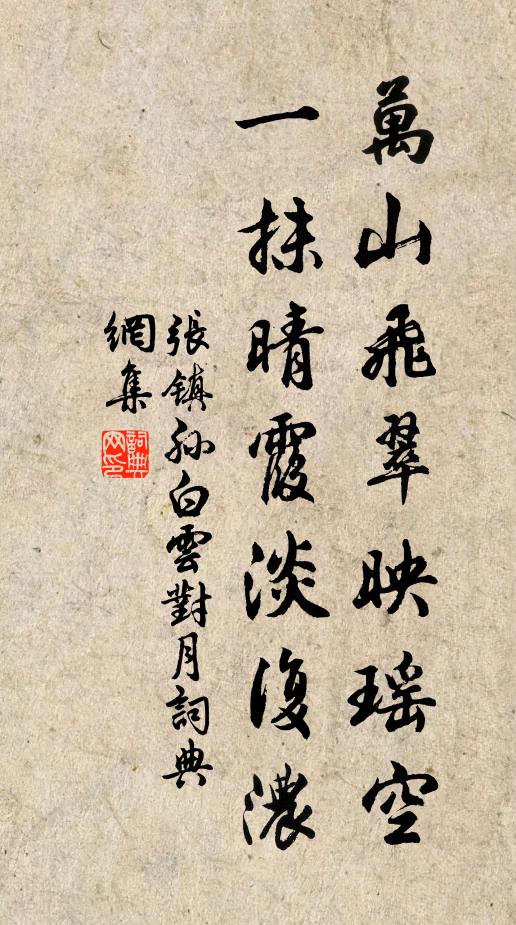 萬山飛翠映瑶空
一抹晴霞淡復濃
張鎮孙白雲對月詞典
網集
詞典
网印